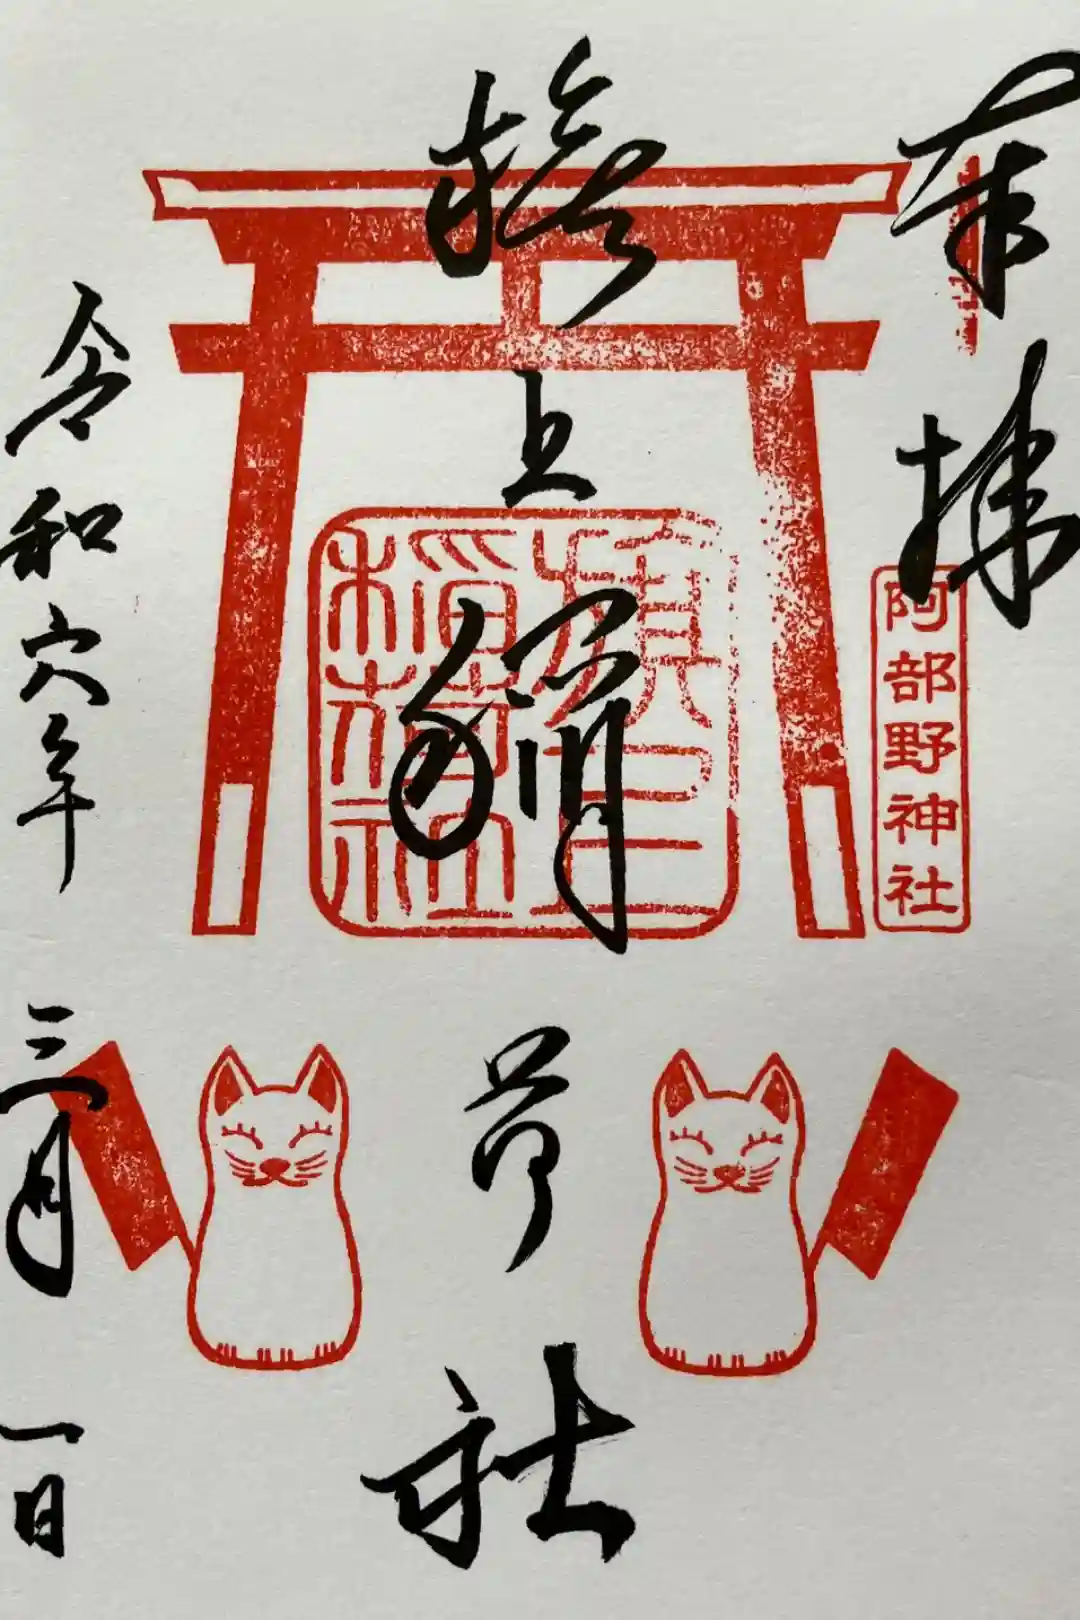 奉拝
阿部野神社
旗上稲荷社
旗上
稲荷社
令和六年三月一日